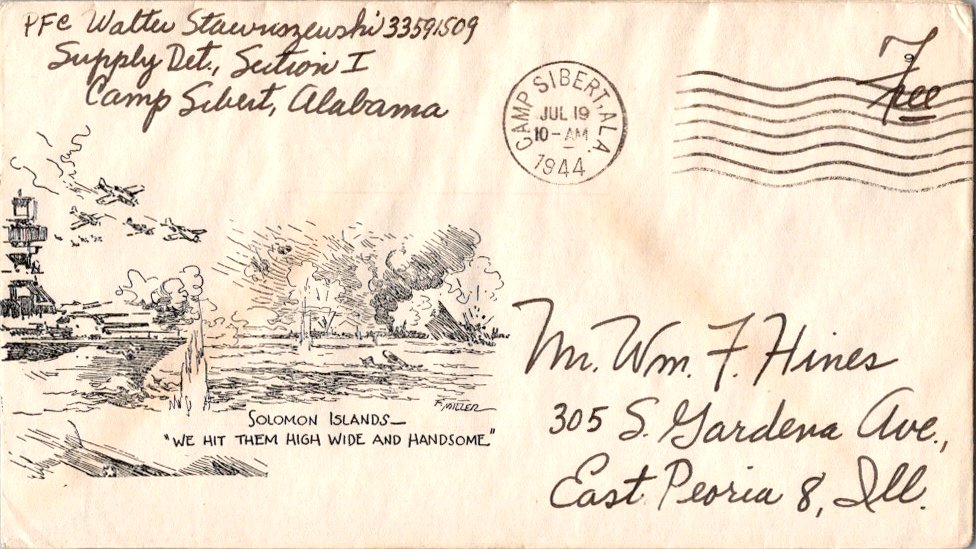 PFc Walter Stawuszewski 33591509
Supply Det., Section I
Camp Sibert, Alabama
Free
CAMP SIBERT, ALA.
JUL 19
10-AM
1944
F. MILLER
SOLOMON ISLANDS—
"WE HIT THEM HIGH WIDE AND HANDSOME"
Mr. Wm. F. Hines
305 S. Gardena Ave.,
East Peoria 8, Ill.